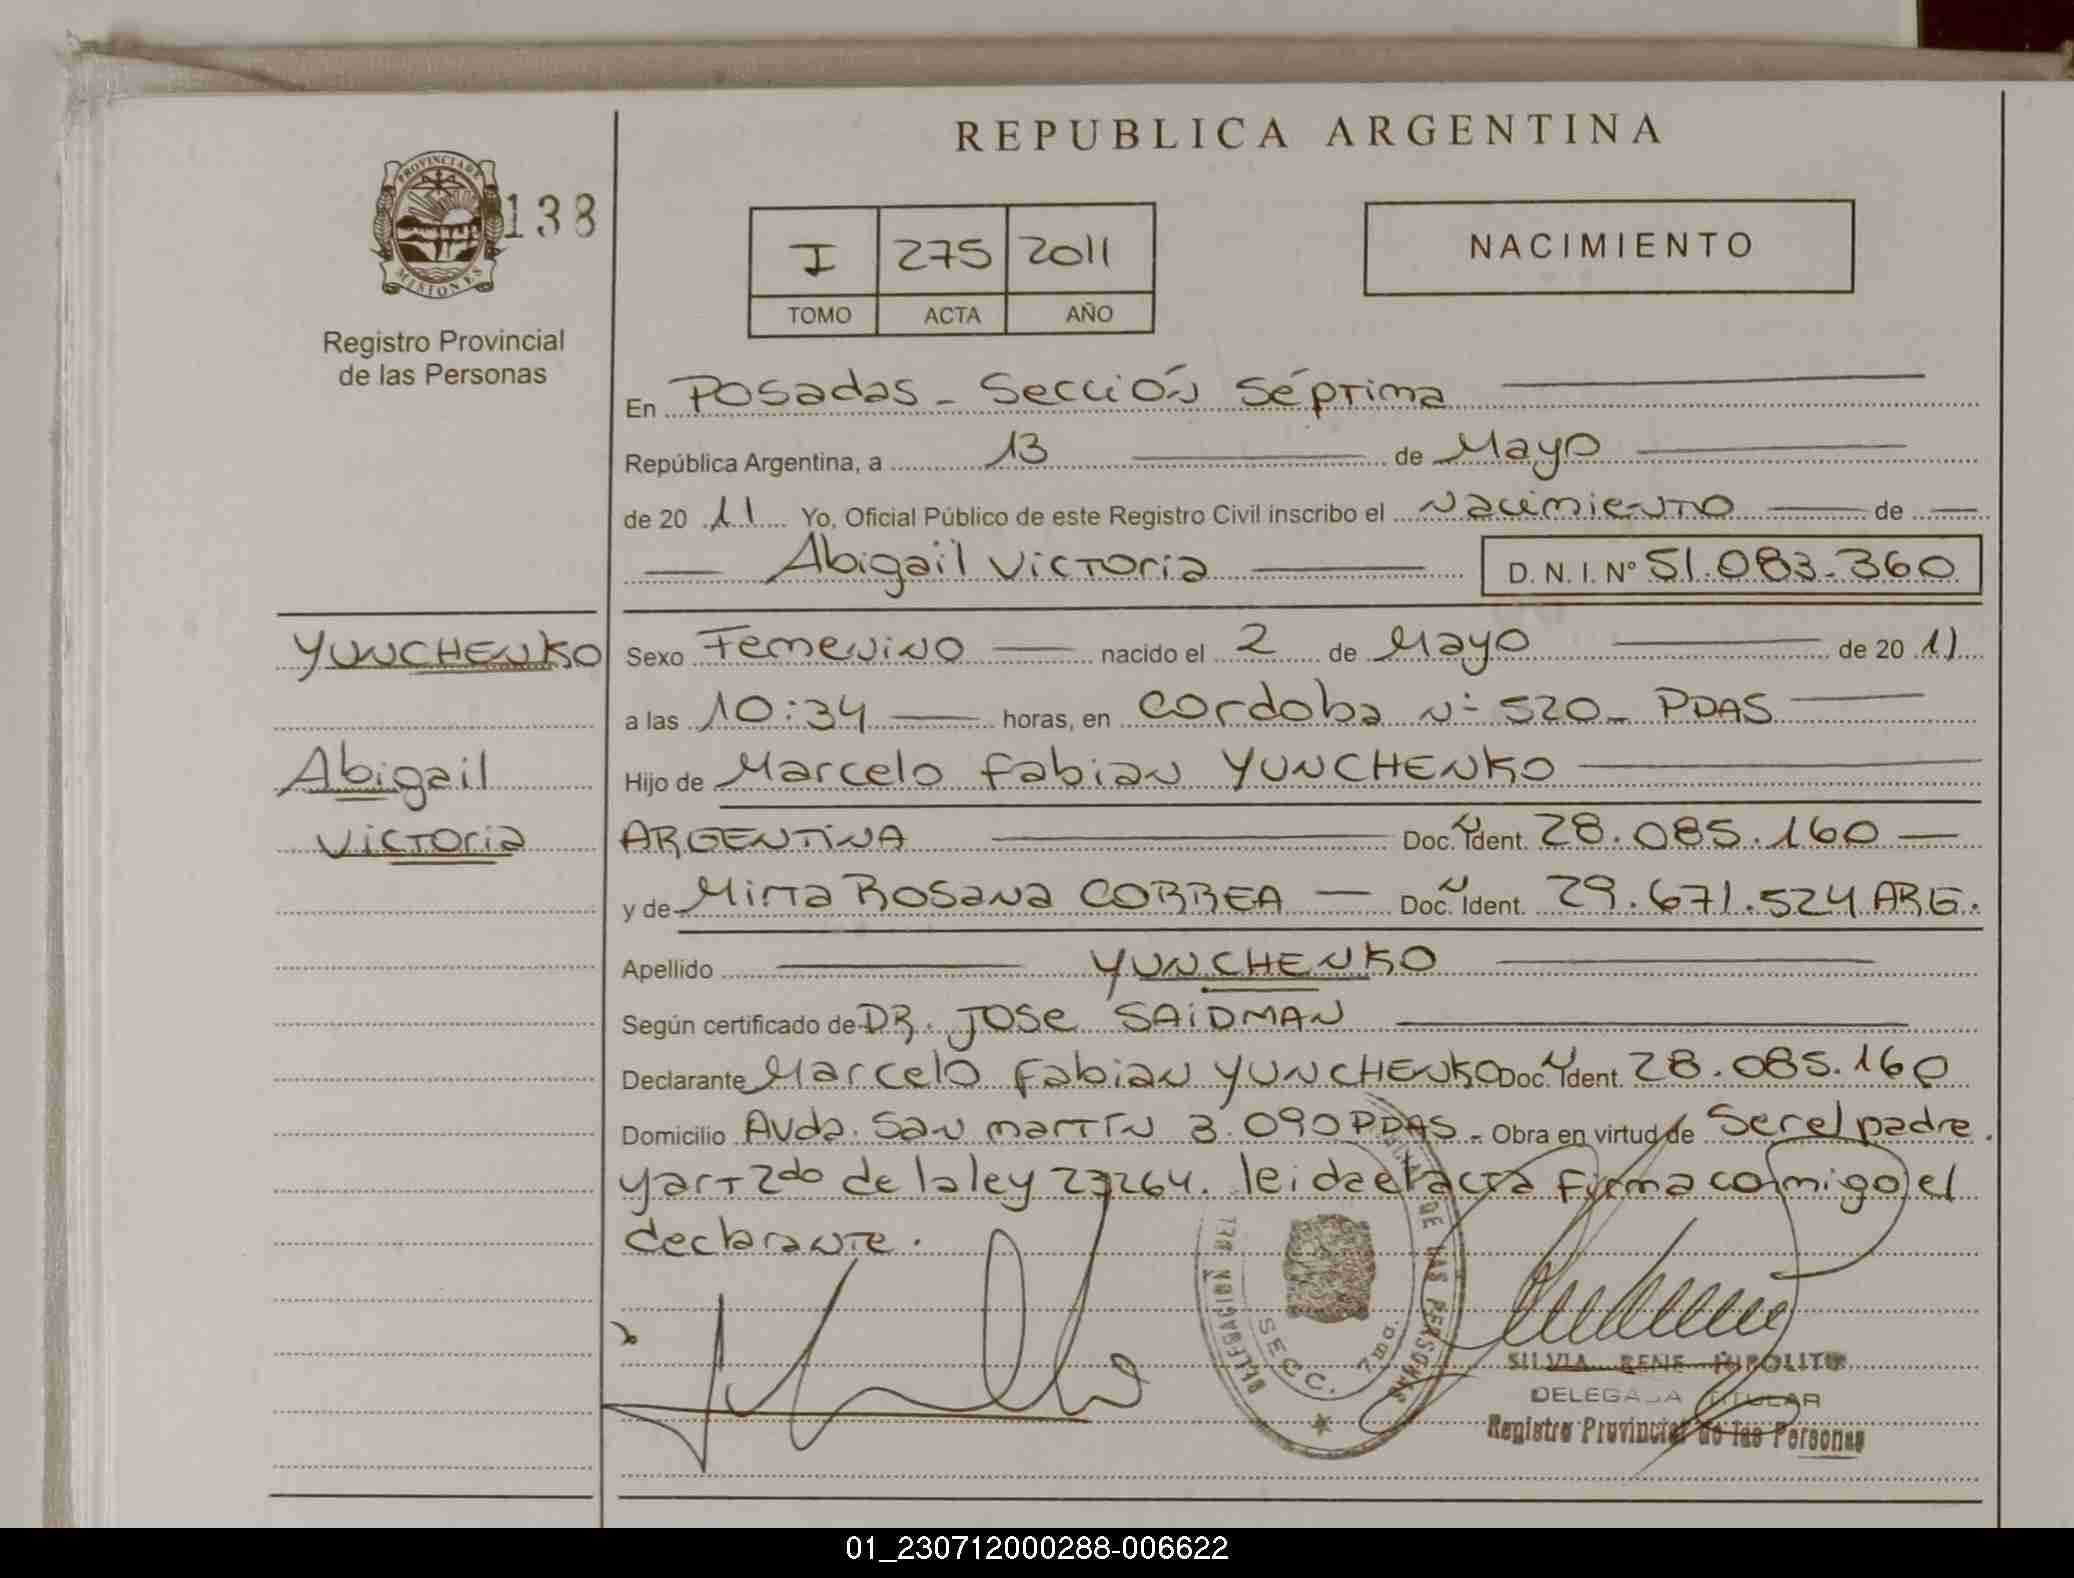 REPUBLICA ARGENTINA
PROVINCIA DE
MISIONES
138
Registro Provincial
de las Personas
I 275 2011
TOMO ACTA AÑO
NACIMIENTO
En Posadas - Sección Séptima
República Argentina, a 13 de Mayo
de 20 11 Yo, Oficial Público de este Registro Civil inscribo el Nacimiento de
Abigail Victoria D. N. I. Nº 51.083.360
YUNCHENKO
Abigail
Victoria
Sexo Femenino nacido el 2 de Mayo de 20 11
a las 10:34 horas, en Cordoba Nº 520 - PDAS
Hijo de Marcelo Fabian YUNCHENKO
ARGENTINA Doc. N Ident. 28.085.160
y de Mirta Rosana CORREA Doc. N Ident. 29.671.524 ARG.
Apellido YUNCHENKO
Según certificado de DR. JOSE SAIDMAN
Declarante Marcelo Fabian YUNCHENKO Doc. N Ident. 28.085.160
Domicilio Avda. San Martín 3.090 PDAS - Obra en virtud de Ser el padre.
y art 2do de la ley 23264. leida el acta firma conmigo el
declarante.
DELEGACION DEL DE LAS PERSONAS
SECC. 7ma.
SILVIA RENE HIPOLITO
DELEGADA TITULAR
Registro Provincial de las Personas
01_230712000288-006622